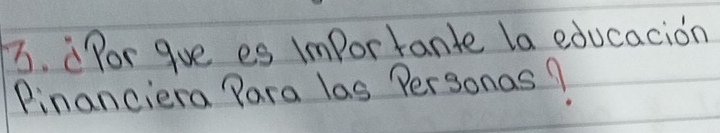 3. ¿Por que es importante la educación
Pinanciera Para las Personas?